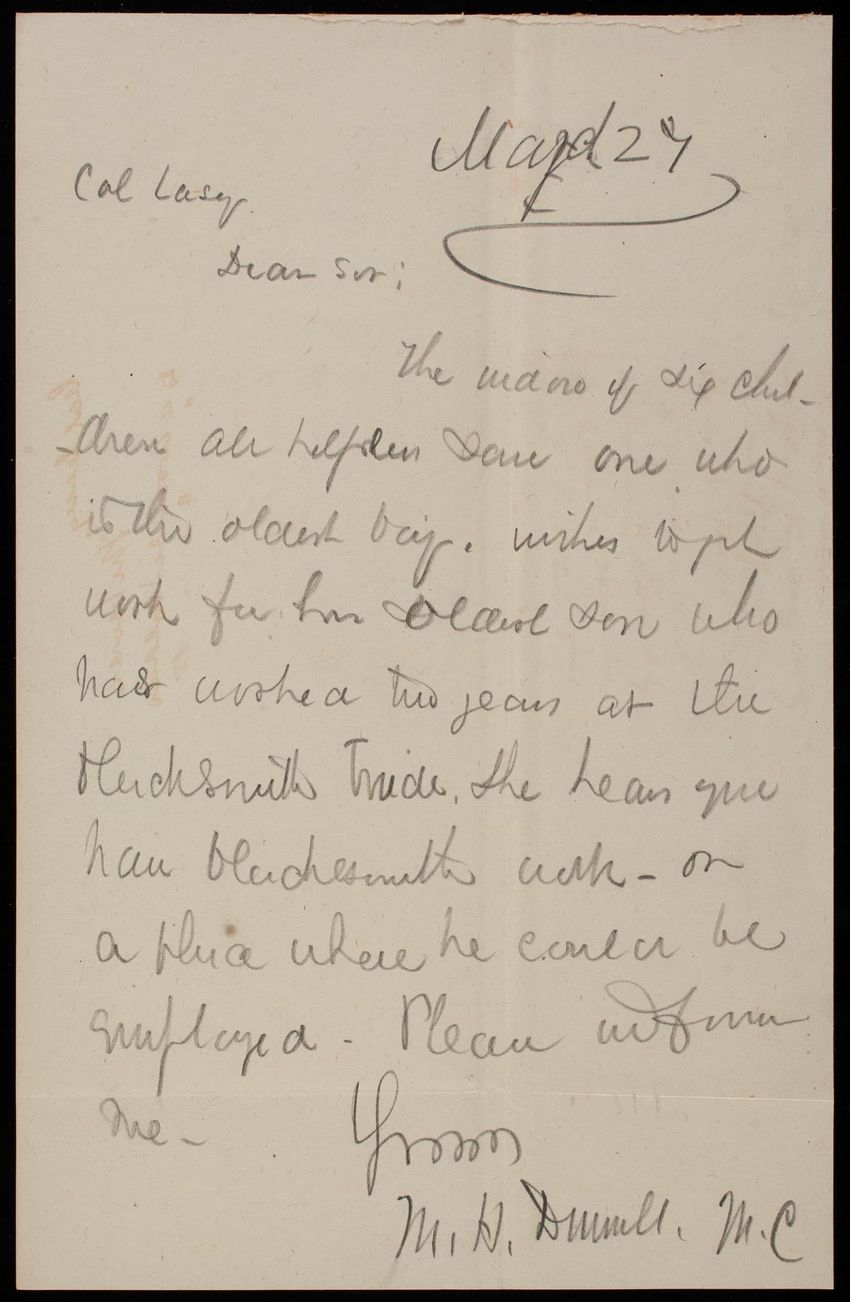 27
Col Casey.
Dear Sir;
The widow of six chil-
-dren all helpless save one who
is the oldest boy. wishes to get
work for her oldest son who
has worked two years at the
blacksmith trade. She hears you
have blacksmith work - or
a place where he could be
employed - Please inform
me -
Yours
M. H. Dunnell. M.C